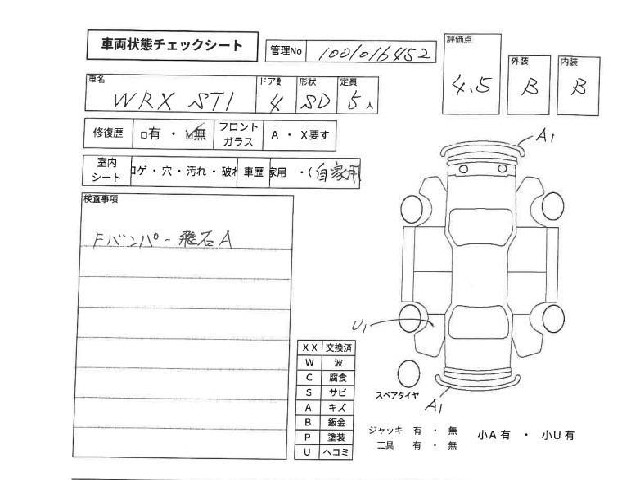 車両状態チェックシート 管理No 1001016452
評価点 4.5 外装 B 内装 B
車名 WRX STI ドア数 4 形状 SD 定員 5人
修復歴 □有 ・ ☑無 フロントガラス A ・ X要す
室内シート コゲ・穴・汚れ・破れ 車歴 家用 ・(自家用
検査事項
Fバンパー飛石A
A1
U1
A1
スペアタイヤ
XX 交換済
W 波
C 腐食
S サビ
A キズ
B 鈑金
P 塗装
U ヘコミ
ジャッキ 有 ・ 無
工具 有 ・ 無
小A 有 ・ 小U 有